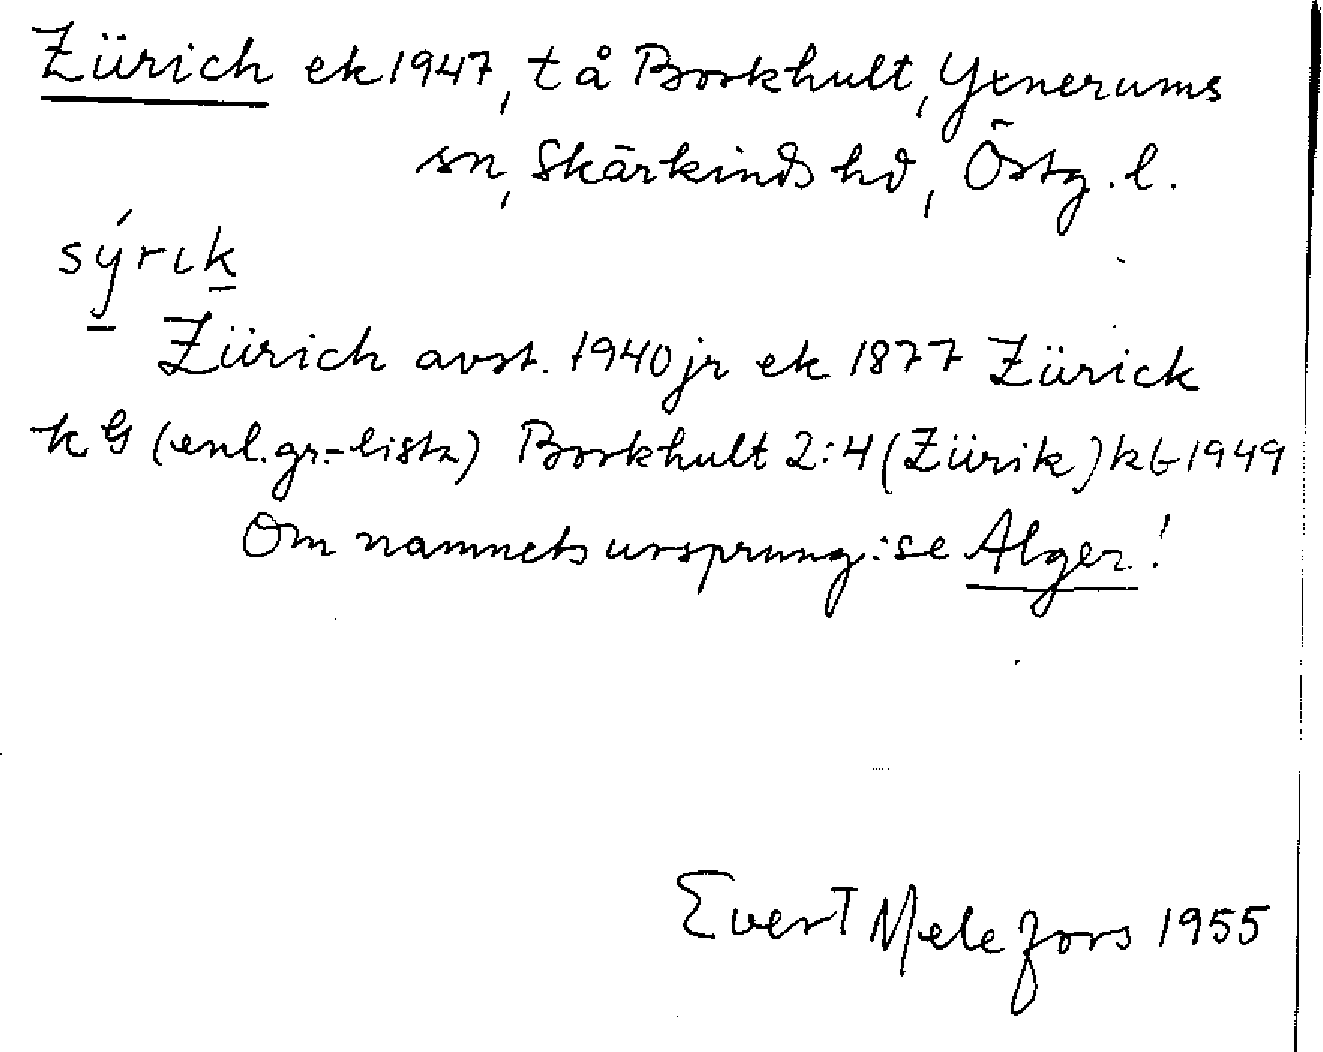 Zürich ek 1947, t å Borkhult, Yxnerums
sn, Skärkinds hd, Östg. l.
sýrık
Zürich avst. 1940 jr ek 1877 Zürick
k G (enl. gr.-lista) Borkhult 2:4 (Zürik) kb 1949
Om namnets ursprung: se Alger!
Evert Melefors 1955